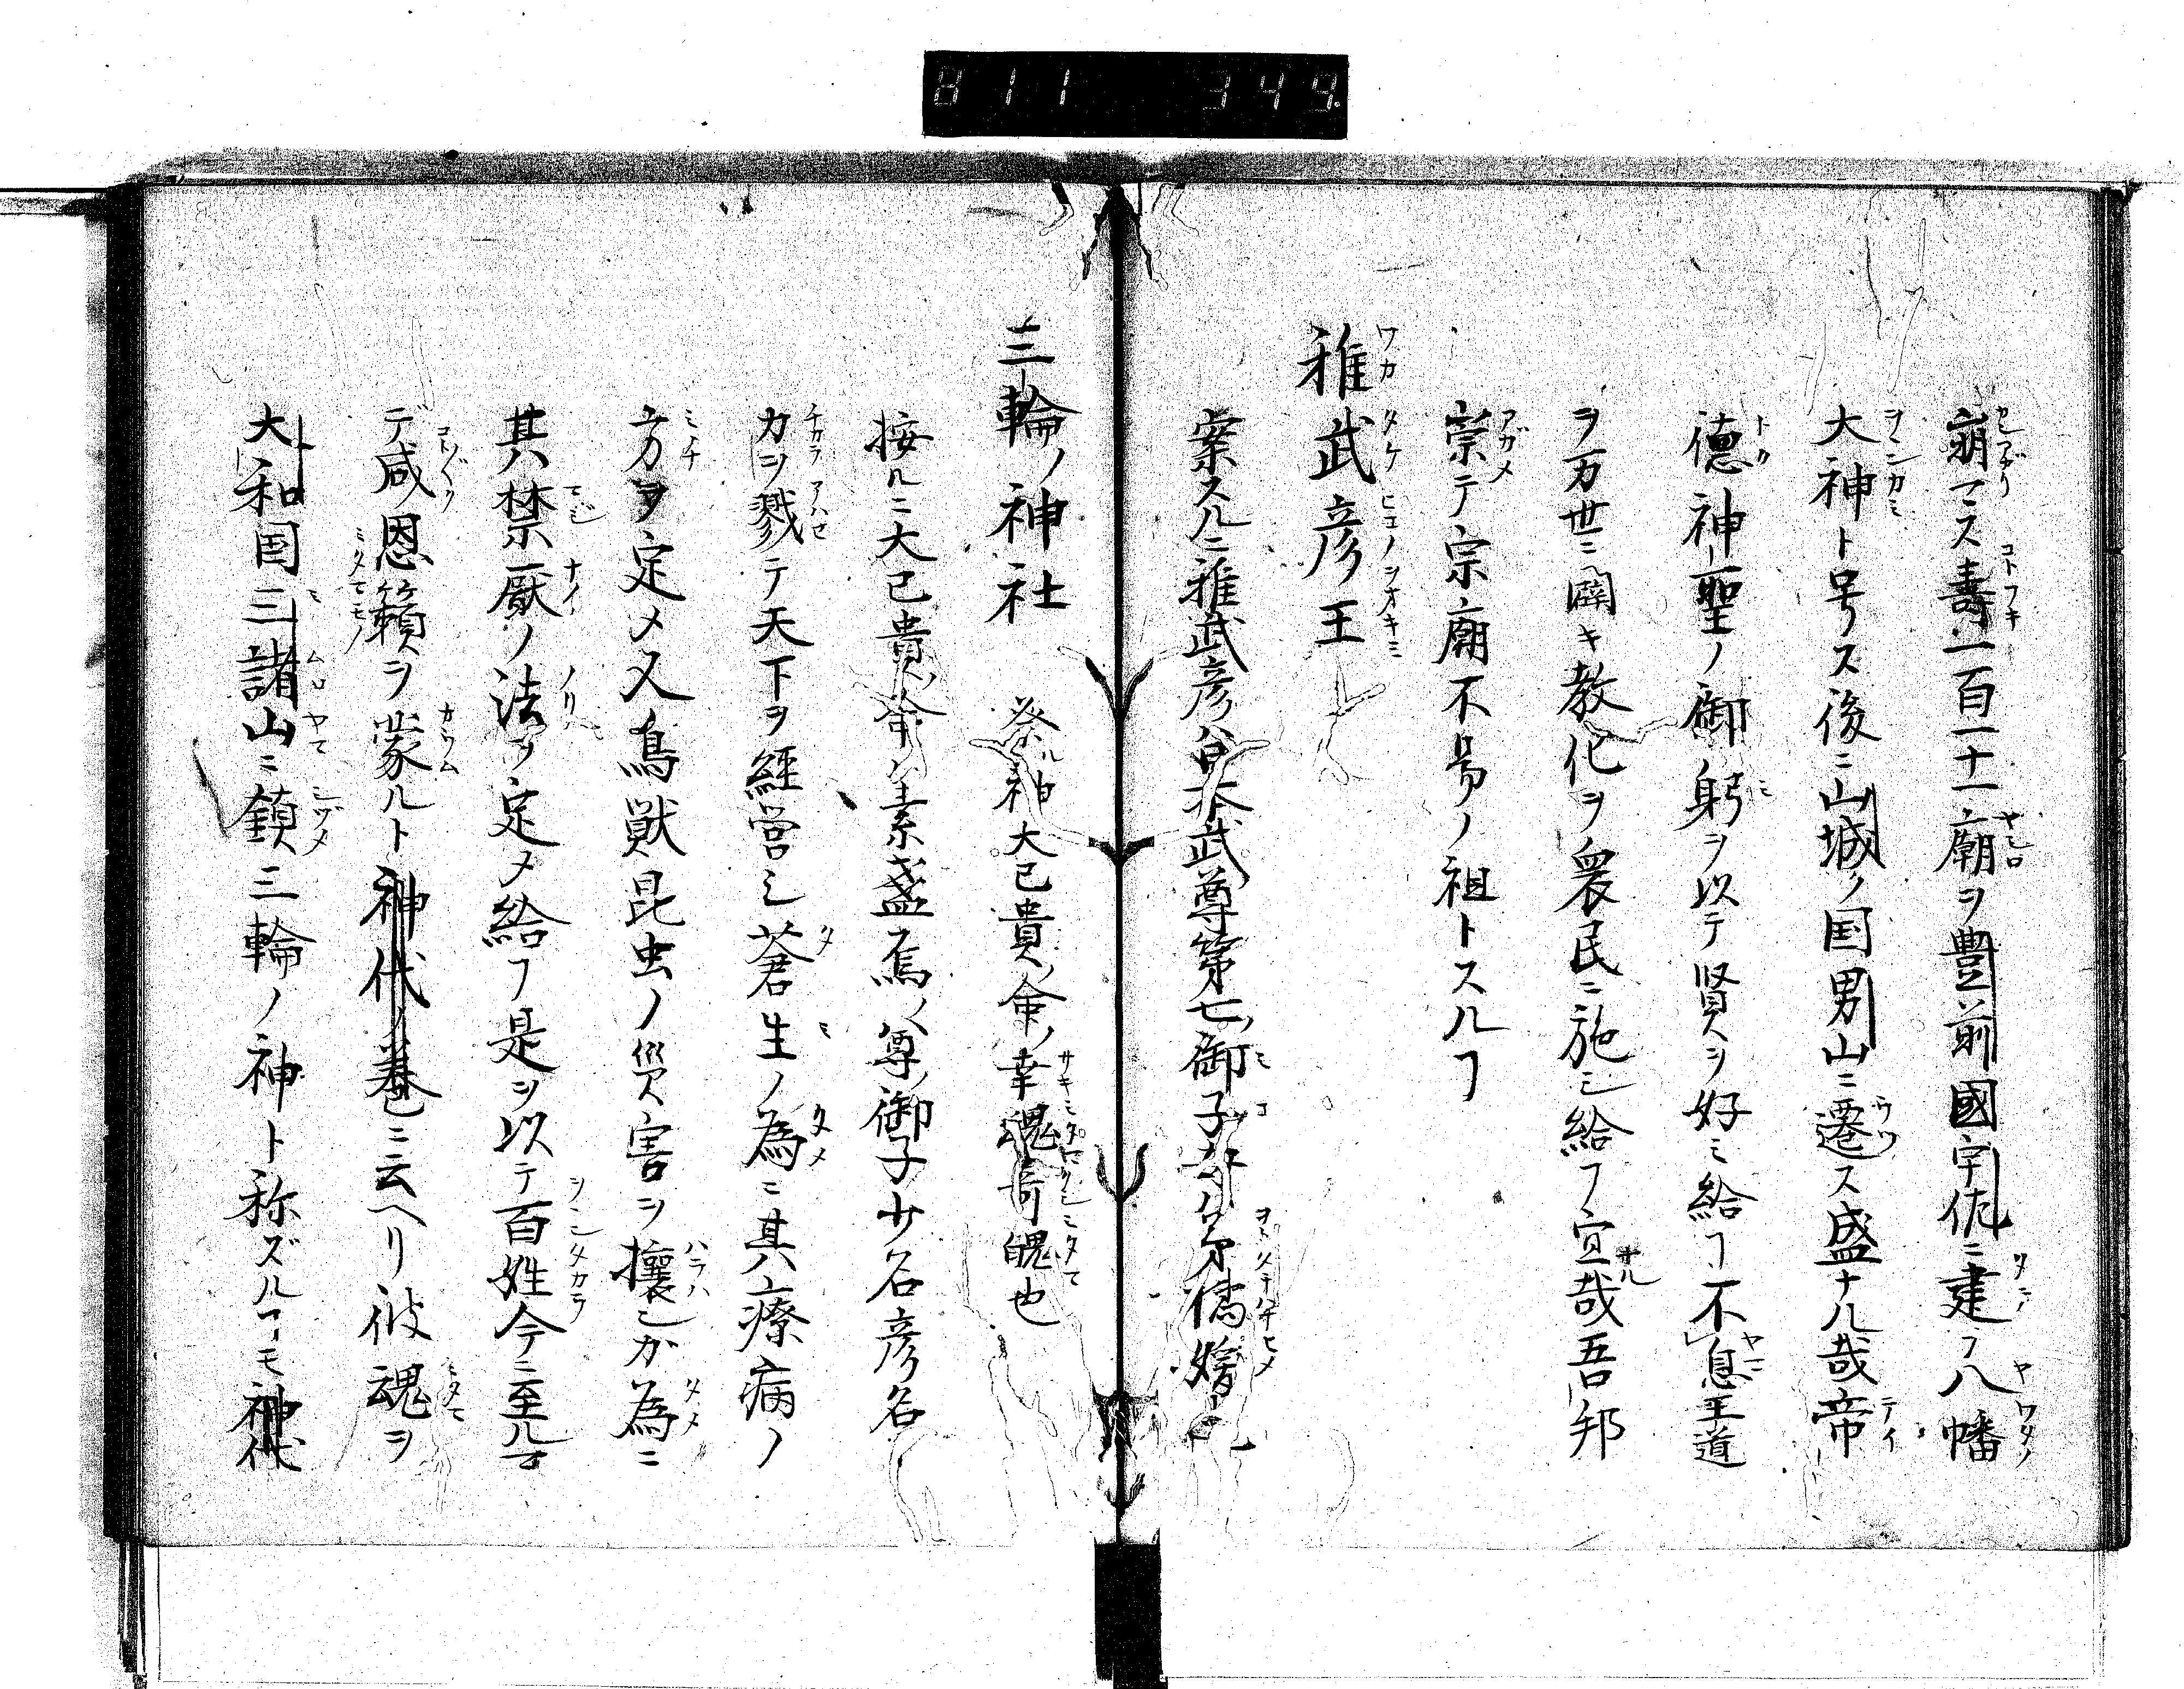 811 349.
崩マス壽一百一十一廟ヲ豊前國宇佐ニ建フ八幡
大神ト号ス後ニ山城ノ国男山ニ遷ス盛ナル哉帝
徳神聖ノ御躬ヲ以テ賢ヲ好ミ給フヿ不息王道
ヲ万世ニ闢キ教化ヲ衆民ニ施シ給フ宜哉吾邦
崇テ宗廟不易ノ祖トスルヿ
稚武彦王
案スルニ稚武彦ハ日本武尊第七ノ御子母ハ弟橘媛ト
三輪ノ神社 祭ル神大己貴ノ命ノ幸魂奇魄也
按ルニ大己貴ノ命ハ素盞烏ノ尊ノ御子少名彦名
力ヲ戮テ天下ヲ経営シ蒼生ノ為ニ其療病ノ
方ヲ定メ又鳥獣昆虫ノ災害ヲ攘ンカ為ニ
其禁厭ノ法ヲ定メ給フ是ヲ以テ百姓今ニ至ルマ
デ咸恩頼ヲ蒙ルト神代ノ巻ニ云ヘリ彼魂ヲ
大和国三諸山ニ鎮三輪ノ神ト称ズルヿモ神代